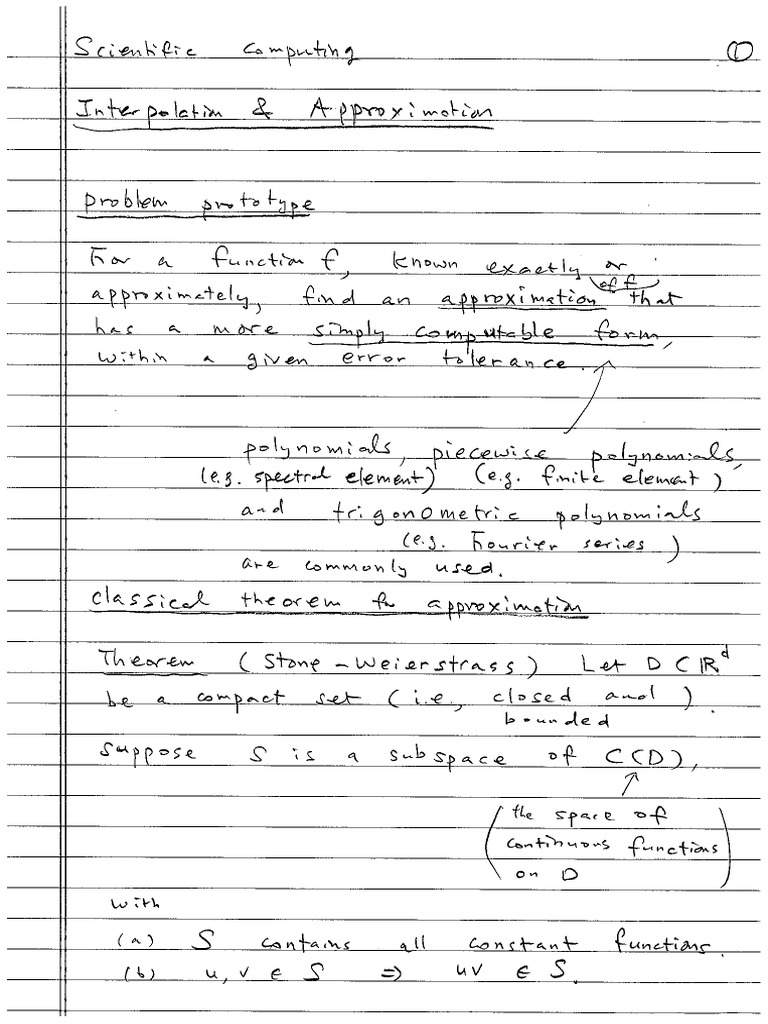 Scientific Computing ①
Interpolation & Approximation
problem prototype
For a function f, known exactly or
approximately, find an approximation of f that
has a more simply computable form,
within a given error tolerance.
polynomials, piecewise polynomials,
(e.g. spectral element) (e.g. finite element)
and trigonometric polynomials
(e.g. Fourier series)
are commonly used.
classical theorem for approximation
Theorem (Stone-Weierstrass) Let D ⊂ ℝᵈ
be a compact set (i.e., closed and bounded).
suppose S is a subspace of C(D),
(the space of
continuous functions
on D)
with
(a) S contains all constant functions.
(b) u, v ∈ S ⇒ uv ∈ S.